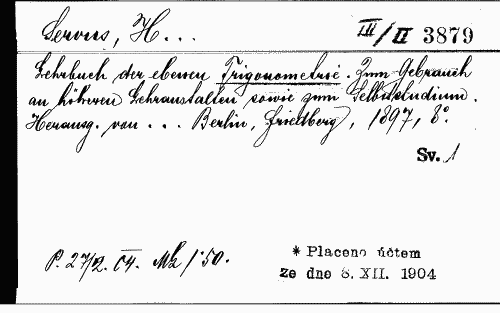 Servus, H... III/II 3879
Lehrbuch der ebenen Trigonometrie. Zum Gebrauch
an höheren Lehranstalten sowie zum Selbststudium.
Herausg. von ... Berlin, Friedberg, 1897, 8°.
Sv. 1
P. 27/2. 04. Mk 1·50.
* Placeno účtem
ze dne 8. XII. 1904